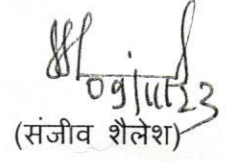 09/11/23
(संजीव शैलेश)